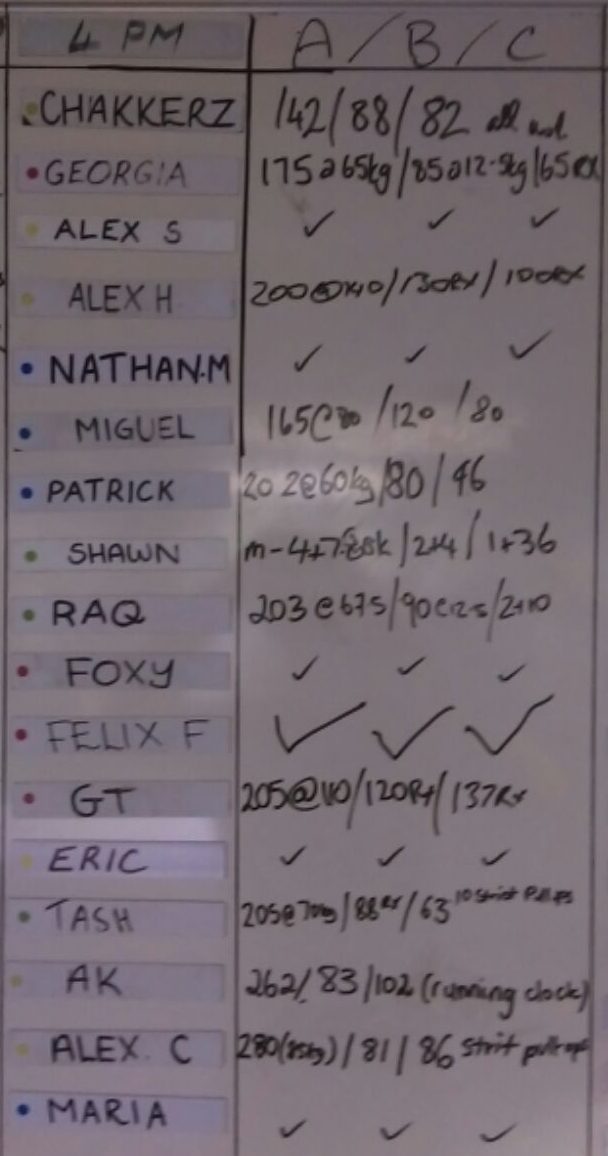 4 PM A / B / C
CHAKKERZ 142/88/82
GEORGIA 175@65kg/85@12.5kg/65RX
ALEX S ✓ ✓ ✓
ALEX H 200@40/130RX/100RX
NATHAN.M ✓ ✓ ✓
MIGUEL 165@80/120/80
PATRICK 202@60kg/80/46
SHAWN /2+4/1+36
RAQ 203@67.5/90@12.5/2+10
FOXY ✓ ✓ ✓
FELIX F ✓ ✓ ✓
GT 205@110/120Rx/137Rx
ERIC ✓ ✓ ✓
TASH 205@70kg/88RX/63 10 strict Pullups
AK 262/83/102 (running clock)
ALEX C 280(85kg)/81/86 strict pullups
MARIA ✓ ✓ ✓